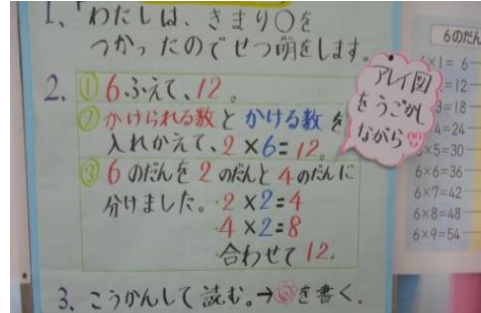 1、「わたしは、きまり○を
つかったのでせつ明をします。
2. ① 6ふえて、12。
② かけられる数とかける数を
入れかえて、2×6=12。
③ 6のだんを2のだんと4のだんに
分けました。・2×2=4
・4×2=8
合わせて12.
3. こうかんして読む。→を書く。
アレイ図
をうごかし
ながら
6のだん
6×1= 6
=12
3=18
4=24
6×5=30
6×6=36
6×7=42
6×8=48
6×9=54